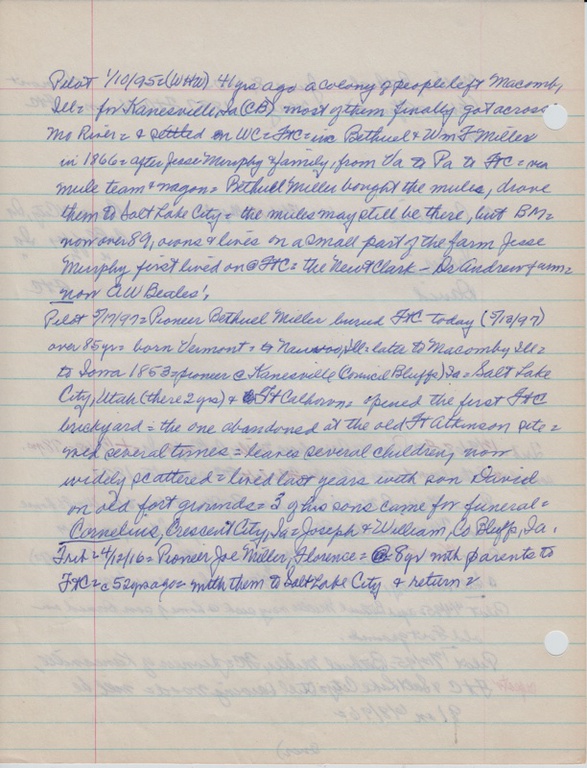 Pilot 1/10/95=(WHW) 41 yrs ago a colony of people left Macomb,
Ill= for Kanesville, Ia (CB) most of them finally got across
Mo River= & settled in WC= FtC= inc Bethuel & Wm F Miller
in 1866= after Jesse Murphy & family, from Va to Pa to FtC= via
mule team & wagon= Bethuel Miller bought the mules, drove
them to Salt Lake City= the mules may still be there, but BM=
now over 89, owns & lives on a small part of the farm Jesse
Murphy first lived on @ FtC= the Newt Clark - Dr Andrew farm=
now AW Beales',
Pilot 5/17/97= Pioneer Bethuel Miller buried FtC today (5/13/97)
over 85 yrs= born Vermont= to Nauvoo, Ill= later to Macomb, Ill=
to Iowa 1853= pioneer @ Kanesville (Council Bluffs) Ia= Salt Lake
City, Utah (there 2 yrs) & Ft Calhoun= opened the first FtC
brickyard= the one abandoned at the old Ft Atkinson site=
wed several times= leaves several children, now
widely scattered= lived last years with son David
on old fort grounds= 3 of his sons came for funeral=
Cornelius, Crescent City, Ia= Joseph & William, Co Bluffs, Ia.
Trib= 4/12/16= Pioneer Joe Miller, Florence= @ 8 yr with parents to
FtC= c 52 yrs ago= with them to Salt Lake City & return=